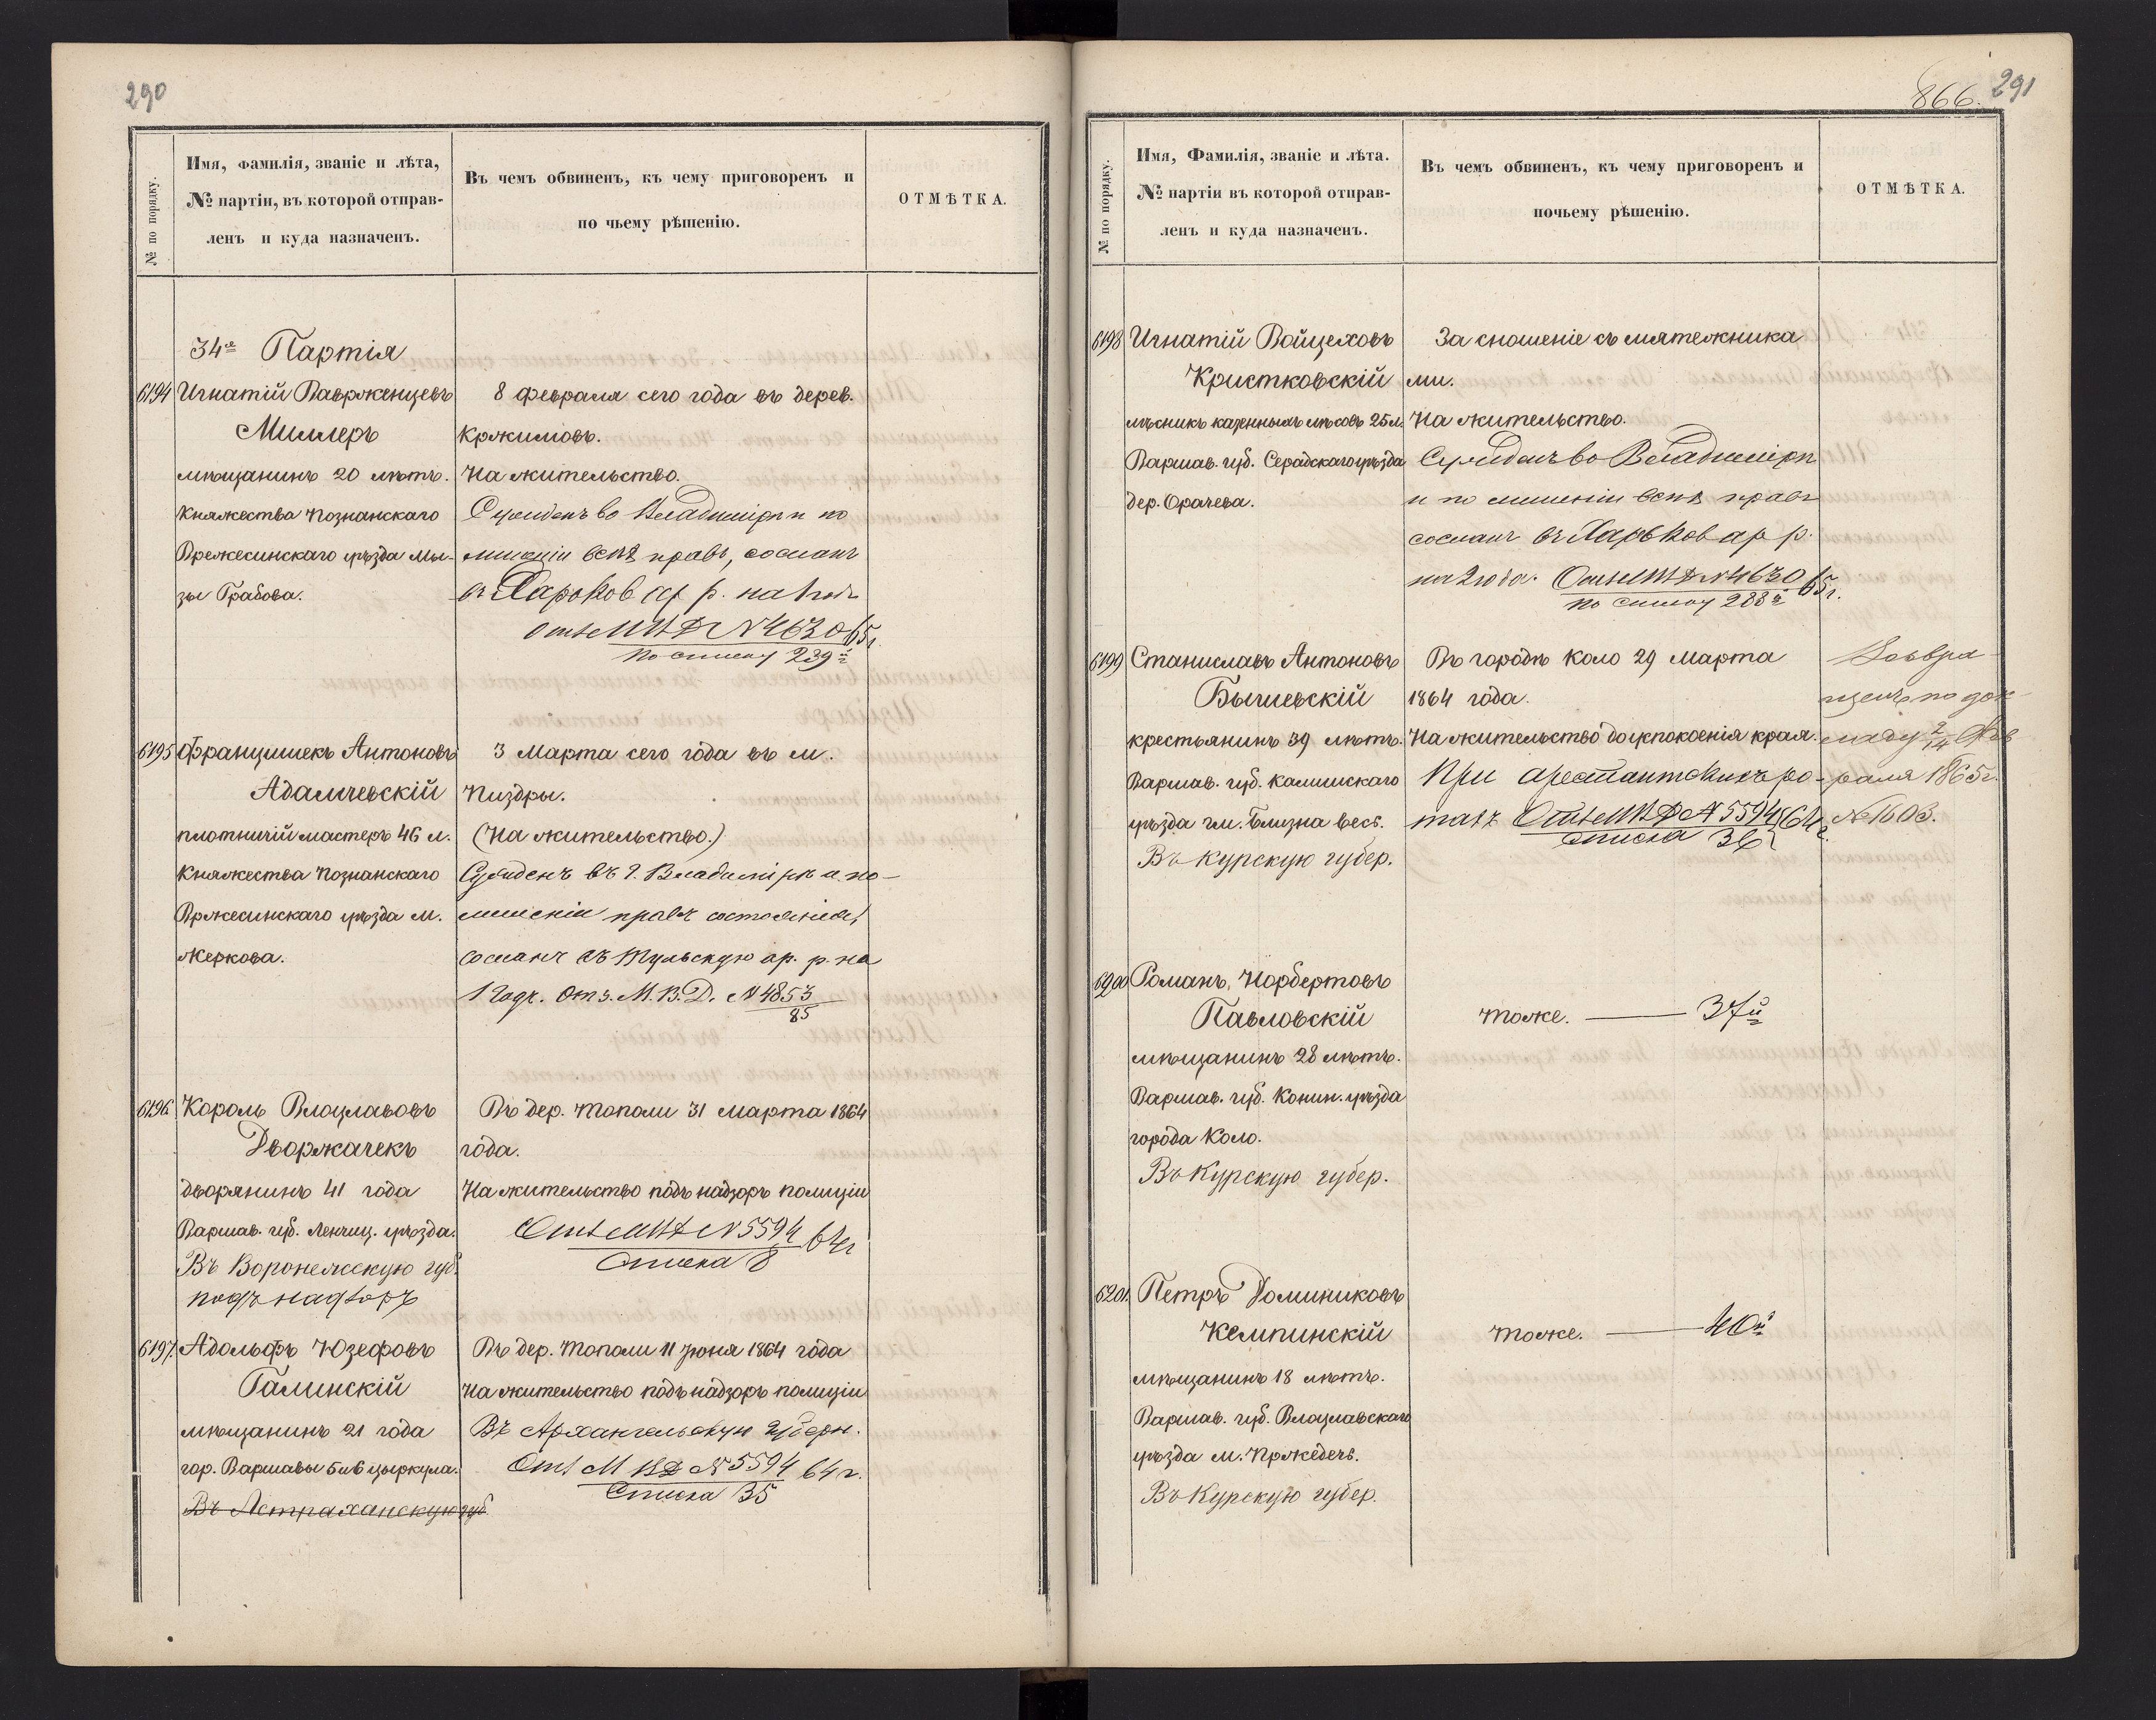 290
№ по порядку.
Имя, фамилія, званіе и лѣта,
№ партіи, въ которой отправ-
ленъ и куда назначенъ.
Въ чемъ обвиненъ, къ чему приговоренъ и
по чьему рѣшенію.
ОТМѢТКА.
34я Партія
6194 Игнатій Ваврженцевъ
Миллеръ
мѣщанинъ 20 лѣтъ.
Княжества Познанскаго
Врежесинскаго уѣзда мы-
зы Грабова.
8 Февраля сего года въ дерев.
Кржимовъ.
На жительство.
Сужденъ во Владимірѣ и по
лишеніи всѣхъ правъ, сосланъ
въ Харьков ар. р. на 1 годъ
Отз. МВД № 4630 65 г.
по списку 239й
6195 Францишекъ Антоновъ
Адамчевскій
плотничій мастеръ 46 л.
Княжества Познанскаго
Вржесинскаго уѣзда м.
Жеркова.
3 Марта сего года въ м.
Пиздры.
(На жительство.)
Сужденъ въ г. Владимірѣ и по
лишеніи правъ состоянія,
сосланъ въ Тульскую ар. р. на
1 годъ. Отз. М.В.Д. № 4853
85
6196 Король Влоцлавовъ
Дворжачекъ
дворянинъ 41 года
Варшав. губ. Ленчиц. уѣзда.
Въ Воронежскую губ.
подъ надзоръ
Въ дер. Тополи 31 Марта 1864
года.
На жительство подъ надзоръ полиціи
Отз МВД № 5594 64 г
Списка 8
6197. Адольфъ Юзефовъ
Галинскій
мѣщанинъ 21 года
гор. Варшавы 5 и 6 цыркула.
Въ Астраханскую губ.
Въ дер. Тополи 11 Іюня 1864 года
На жительство подъ надзоръ полиціи
Въ Архангельскую губерн.
Отз М ВД № 5594 64 г.
Списка 35
866. 291
№ по порядку.
Имя, Фамилія, званіе и лѣта.
№ партіи въ которой отправ-
ленъ и куда назначенъ.
Въ чемъ обвиненъ, къ чему приговоренъ и
почьему рѣшенію.
ОТМѢТКА.
6198 Игнатій Войцеховъ
Кристковскій
лѣсникъ казенныхъ лѣсовъ 25 л.
Варшав. губ. Серадскаго уѣзда
дер. Орачева.
За сношеніе съ мятежника
ми.
На жительство.
Сужденъ во Владимірѣ
и по лишеніи всѣхъ правъ
сосланъ въ Харьков ар р.
на 2 года. Отз МВД № 4630 65 г.
по списку 288й
6199 Станиславъ Антоновъ
Бычиевскій
крестьянинъ 39 лѣтъ.
Варшав. губ. Калишскаго
уѣзда гм. Близна весь.
Въ Курскую губер.
Въ городѣ Коло 29 Марта
1864 года.
На жительство до успокоенія края.
При арестантскихъ ро-
тахъ Отз МВД № 5594 64 г.
Списка 36
Возвра-
щенъ по док-
ладу 2/14 Фев
раля 1865 г.
№ 1603.
6200 Романъ Норбертовъ
Павловскій
мѣщанинъ 28 лѣтъ.
Варшав. губ. Конин. уѣзда
города Коло.
Въ Курскую губер.
Тоже. — 37й
6201. Петръ Доминиковъ
Кемпинскій
мѣщанинъ 18 лѣтъ.
Варшав. губ. Влоцлавскаго
уѣзда м. Пржедечь.
Въ Курскую губер.
Тоже. — 40й